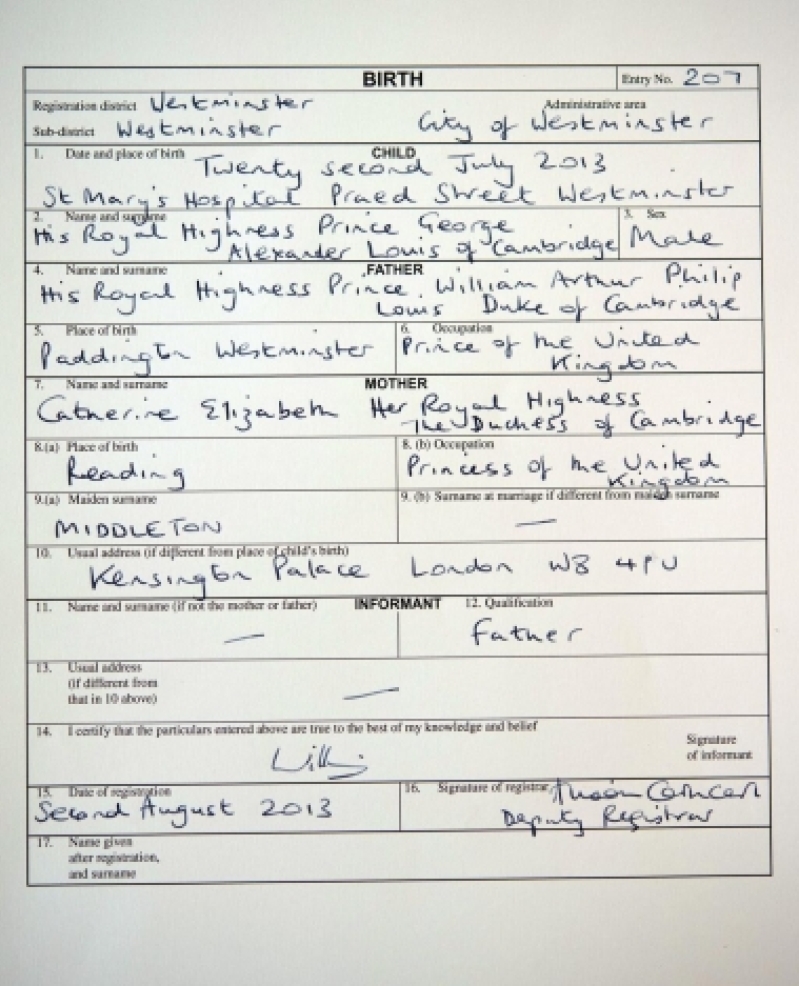 BIRTH Entry No. 207
Registration district Westminster Administrative area
Sub-district Westminster City of Westminster
1. Date and place of birth CHILD
Twenty second July 2013
St Mary's Hospital Praed Street Westminster
2. Name and surname 3. Sex
His Royal Highness Prince George Male
Alexander Louis of Cambridge
4. Name and surname FATHER
His Royal Highness Prince William Arthur Philip
Louis Duke of Cambridge
5. Place of birth 6. Occupation
Paddington Westminster Prince of the United
Kingdom
7. Name and surname MOTHER
Catherine Elizabeth Her Royal Highness
The Duchess of Cambridge
8.(a) Place of birth 8. (b) Occupation
Reading Princess of the United
Kingdom
9.(a) Maiden surname 9. (b) Surname at marriage if different from maiden surname
MIDDLETON —
10. Usual address (if different from place of child's birth)
Kensington Palace London W8 4PU
11. Name and surname (if not the mother or father) INFORMANT 12. Qualification
— Father
13. Usual address
(if different from
that in 10 above) —
14. I certify that the particulars entered above are true to the best of my knowledge and belief
Signature
of informant
15. Date of registration 16. Signature of registrar
Second August 2013
Deputy Registrar
17. Name given
after registration,
and surname